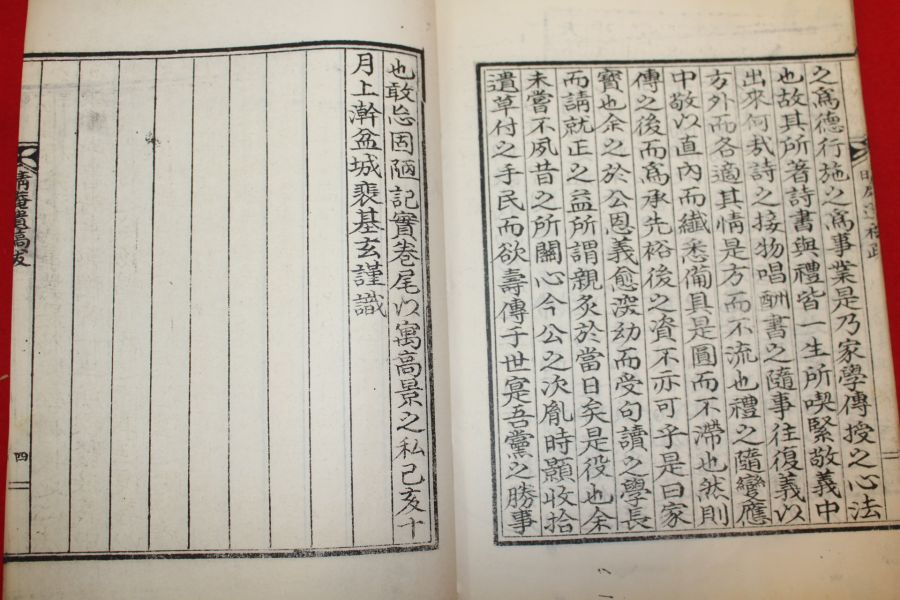 之爲德行施之爲事業是乃家學傳授之心法
也故其所著詩書與禮皆一生所喫緊敬義中
出來何㢤詩之接物唱酬書之隨事往復義以
方外而各適其情是方而不流也禮之隨變應
中敬以直內而纖悉備具是圓而不滯也然則
傳之後而爲承先裕後之資不亦可乎是曰家
寶也余之於公恩義愈深幼而受句讀之學長
而請就正之益所謂親炙於當日矣是役也余
未嘗不夙昔之所關心今公之次胤時顯收拾
遺草付之手民而欲壽傳于世寔吾黨之勝事
也敢忘固陋記實卷尾以寓高景之私己亥十
月上澣盆城裵基玄謹識
遺稿跋
四